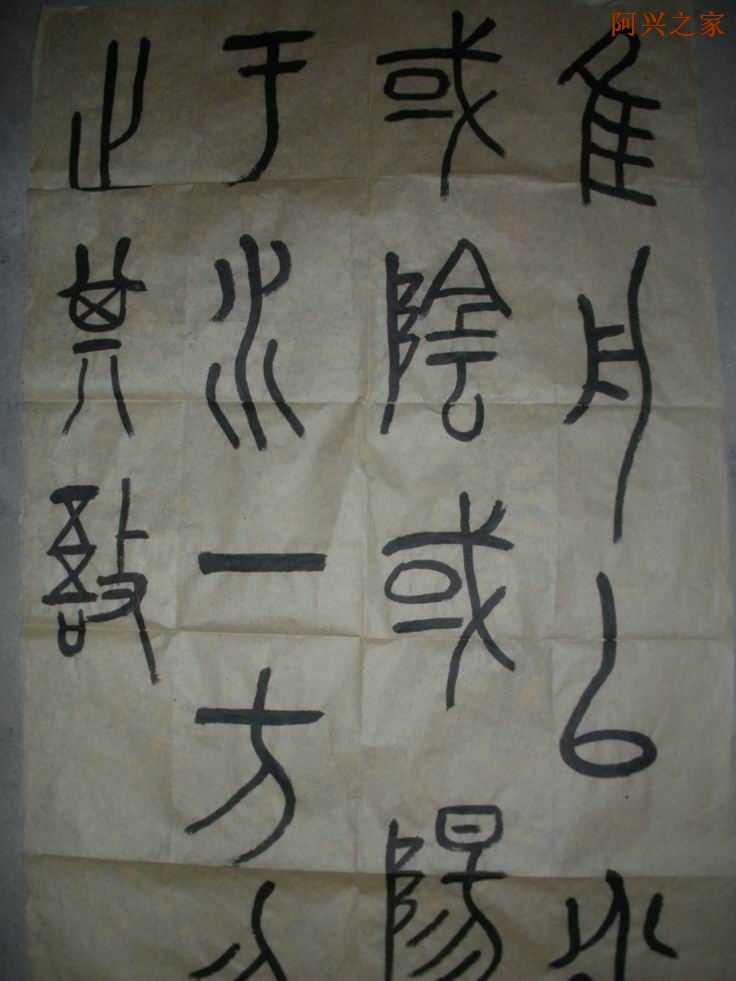 阿兴之家
隹月以
或陰或陽
于水一方
止其敔